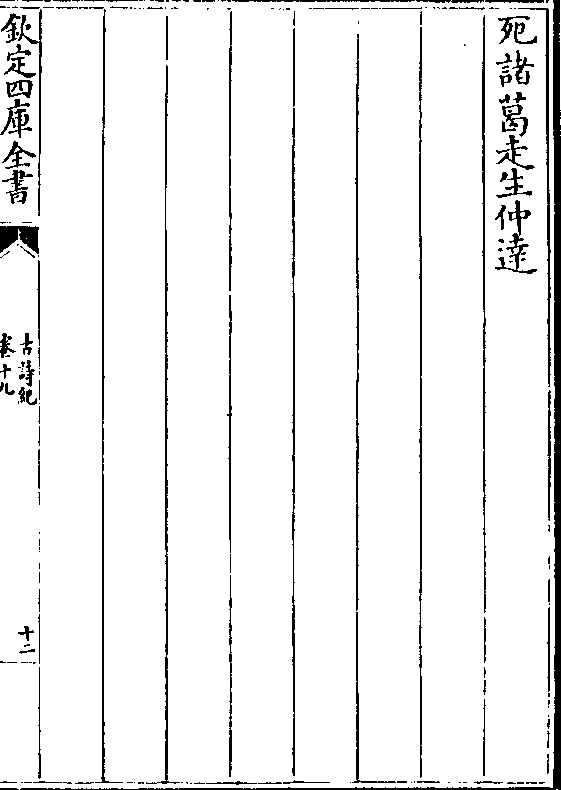 死諸葛走生仲達
欽定四庫全書
古詩紀
卷十九
十二